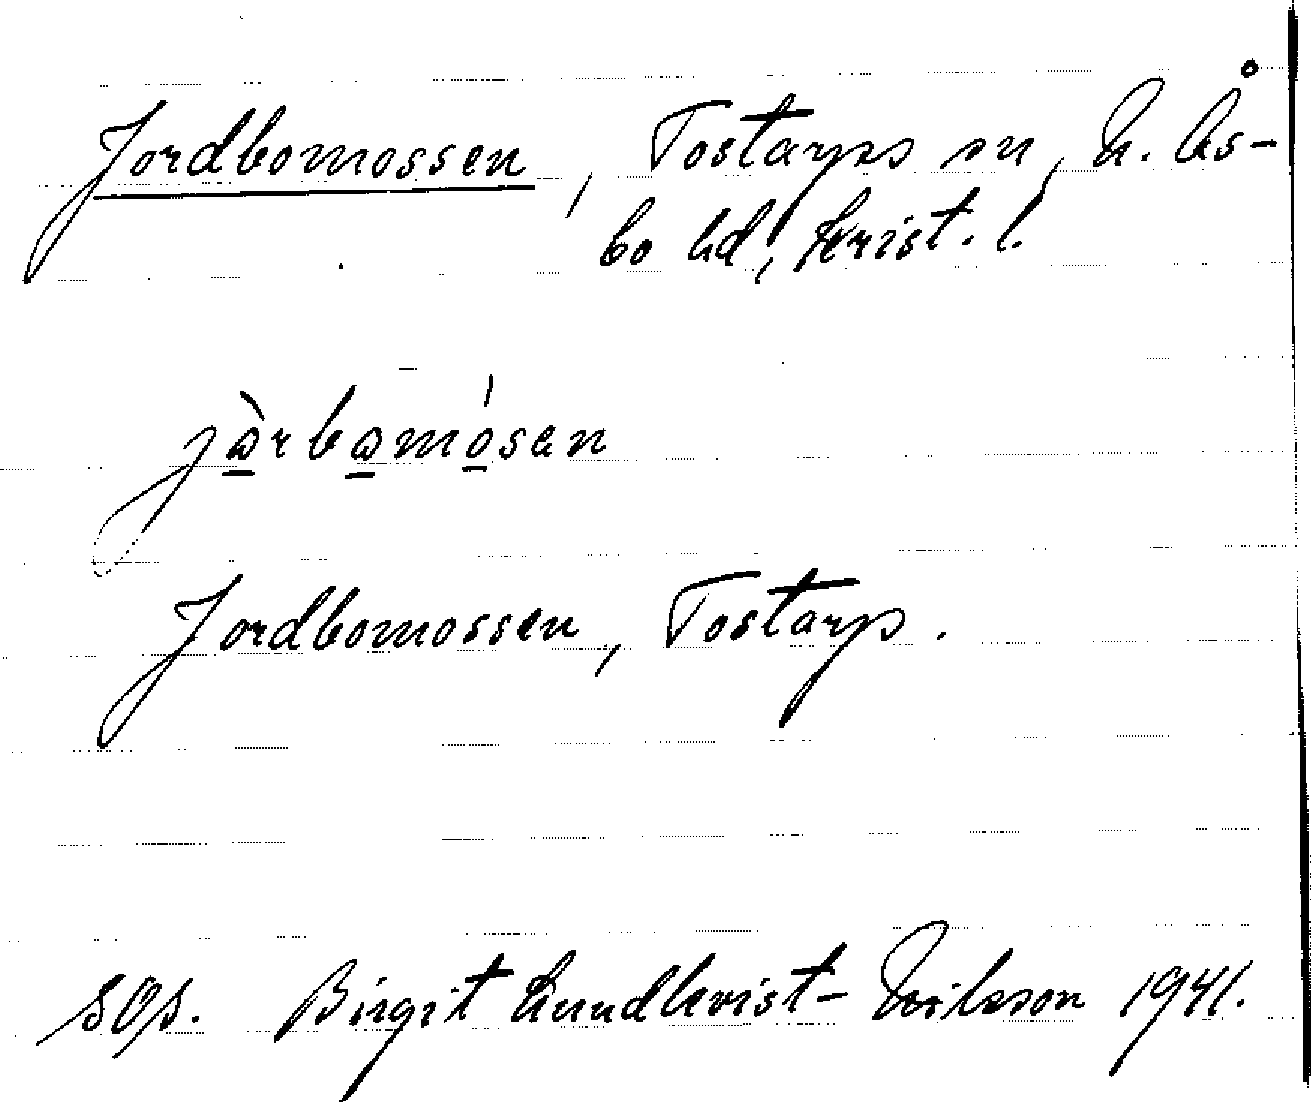 Jordbomossen, Tostarps sn, N. Ås-
bo hd, Krist. l.
jàrbamósen
Jordbomossen, Tostarp.
Birgit Lundkvist-Nilsson 1941.